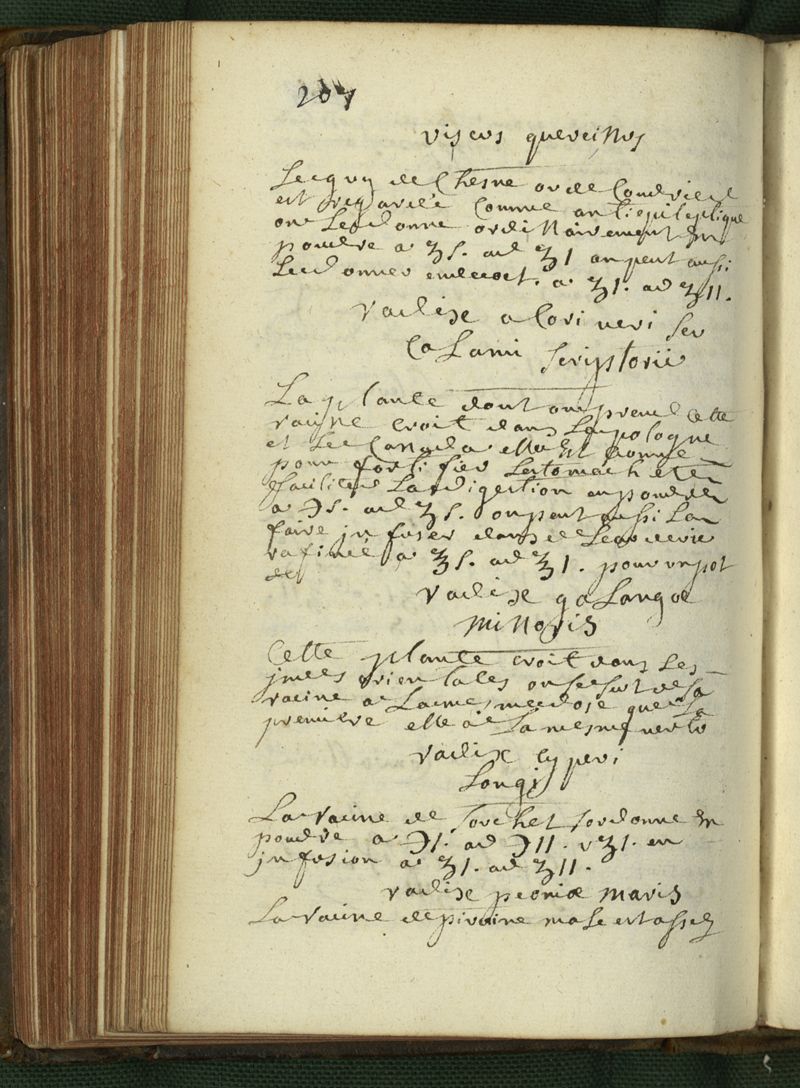 207
viscus quercinus
Le guy de Chesne ou de Coudrier
est regardée Comme antiepileptique
on Le donne ordinairement en
poudre a ʒs. ad ʒ1 on peut aussi
Le donner en decoct. a ʒ1. ad ʒ11.
radix acori veri seu
Calami scriptorii
La plante dont on prend Cette
racine croit dans La pologne
et Le Canada elle est bonne
pour fortifier Lestomach et
faciliter La digestion en poudre
a ℈s. ad ʒs. on peut aussi La
faire jnfuser dans de
a ʒs. ad ʒ1. pour un pot
radix galangæ
minoris
Cette plante croit dans Les
jndes orientales on se sert de sa
racine a La mesme dose que La
premiere elle a La mesme vertu
radix cyperi
Longi
La racine de souchet se donne en
poudre a ℈1. ad ℈11. vʒ1. en
jnfusion a ʒ1. ad ʒ11.
radix peoniæ maris
La racine de pivoine male est assez